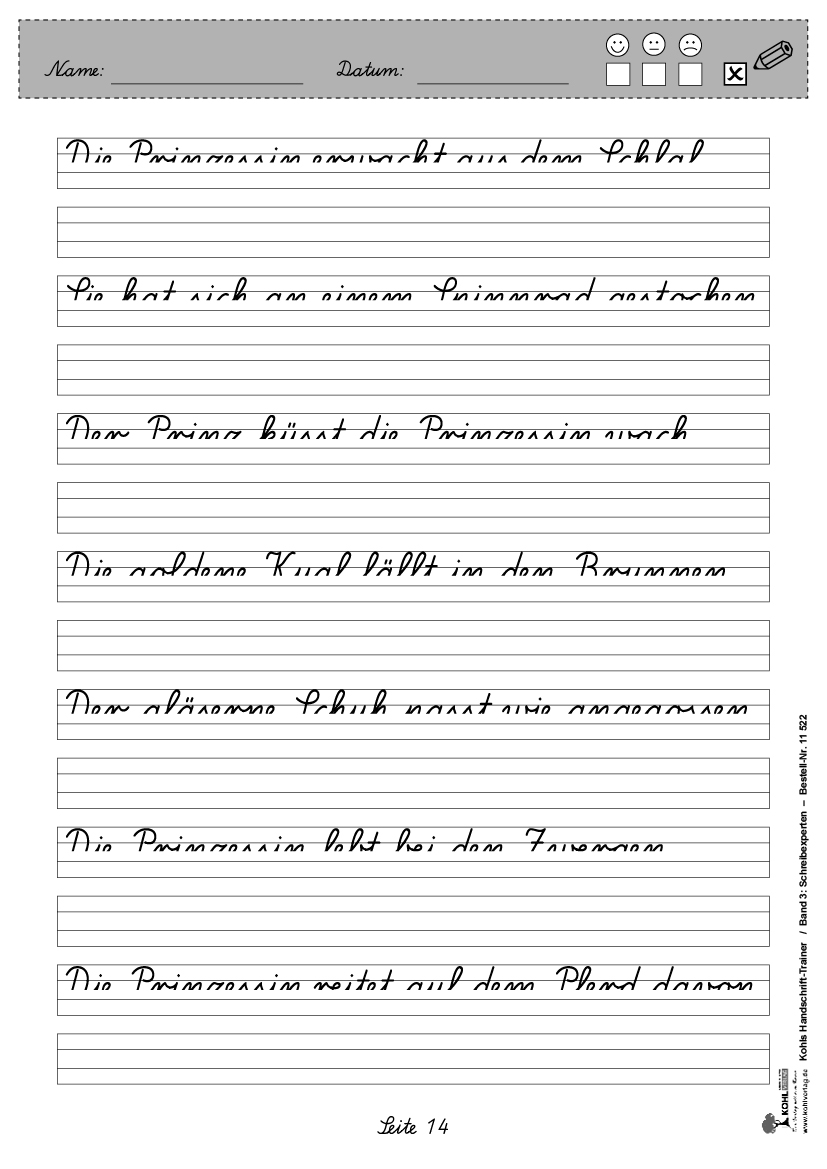 Name: Datum:
Die Prinzessin erwacht aus dem Schlaf
Sie hat sich an einem Spinnrad gestochen
Der Prinz küsst die Prinzessin wach
Die goldene Kugel fällt in den Brunnen
Der gläserne Schuh passt wie angegossen
Die Prinzessin lebt bei den Zwergen
Die Prinzessin reitet auf dem Pferd davon
Seite 14
Kohls Handschrift-Trainer / Band 3: Schreibexperten – Bestell-Nr. 11 522
KOHL
www.kohlverlag.de